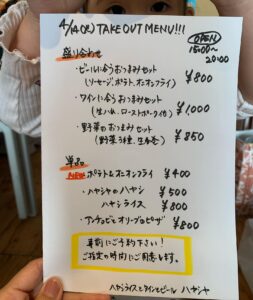 4/14(火) TAKE OUT MENU!!!
OPEN
15:00〜
20:00
盛り合わせ
・ビールに合うおつまみセット
(ソーセージ、ポテト、オニオンフライ) ¥800
・ワインに合うおつまみセット
(生ハム、ローストポーク他) ¥1,000
・野菜のおつまみセット
(野菜3種、生春巻) ¥850
単品
NEW ポテト&オニオンフライ ¥400
・ハヤシヤのハヤシ ¥500
ハヤシライス ¥800
・アンチョビとオリーブのピザ ¥800
事前にご予約下さい!
ご指定の時間にご用意します。
ハヤシライスとワインとビール ハヤシヤ